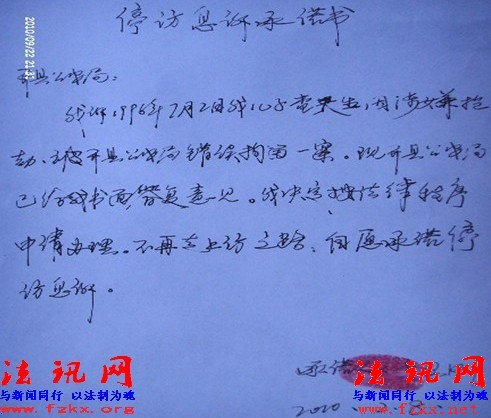 2010/09/22 21:
停访息诉承诺书
开县公安局:
我诉1996年7月2日我儿子 因涉 抢
劫、被开县公安局错误拘留一案。现开县公安局
已给我书面答复意见。我决定按法律程序
申请办理。不再走上访之路、自愿承诺停
访息诉。
承诺
2010
法讯网
与新闻同行 以法制为魂
www.fzkx.org
法讯网
与新闻同行 以法制为魂
www.fzkx.net